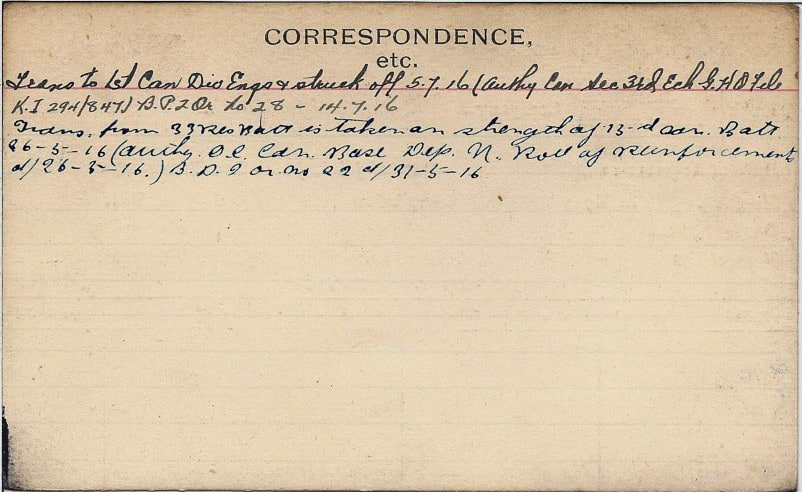 CORRESPONDENCE,
etc.
Trans to 1st Can Div Engs & struck off 5.7.16 (Authy Can Sec 3rd Ech G.H.Q File
K.I 294/847) B.P.2 Or No 28 - 14.7.16
Trans. from 33 Res Batt is taken on strength of 13-d Can. Batt.
26-5-16 (Authy. O.C. Can. Base Dep. N. Roll of Reinforcements
d/26-5-16.) B.D.2 Or. No 22 d/31-5-16